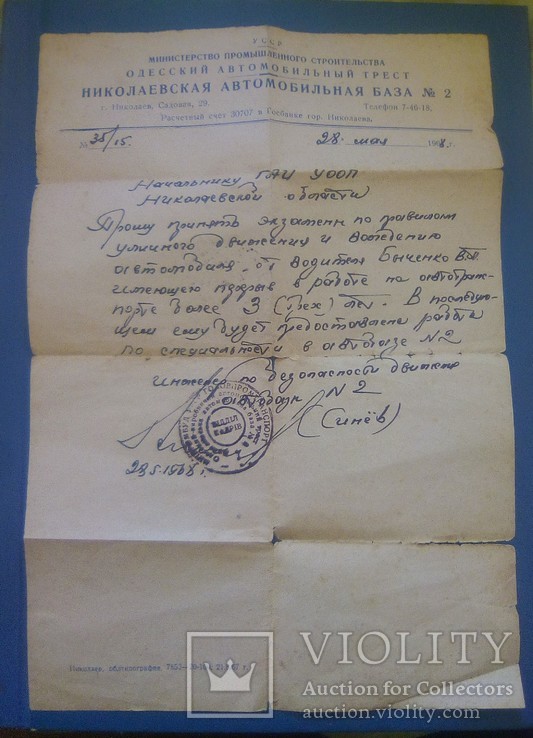 УССР
МИНИСТЕРСТВО ПРОМЫШЛЕННОГО СТРОИТЕЛЬСТВА
ОДЕССКИЙ АВТОМОБИЛЬНЫЙ ТРЕСТ
НИКОЛАЕВСКАЯ АВТОМОБИЛЬНАЯ БАЗА № 2
г. Николаев, Садовая, 29. Телефон 7-46-18.
Расчетный счет 30707 в Госбанке гор. Николаева.
№ 35/15. 28 мая 1968 г.
Начальнику ГАИ УООП
Николаевской области
Прошу принять экзамены по правилам
уличного движения и вождению
автомобиля от водителя Быченко
имеющего перерыв в работе на автотранс-
порте более 3 (трех) лет. В последую-
щем ему будет предоставлена работа
по специальности в автобазе №2
Инженер по безопасности движения
автобазы №2
(Синёв)
ВІДДІЛ
КАДРІВ
28.5.1968 г.
Николаев, облполиграфия 7855
VIOLITY
Auction for Collectors
auction.violity.com